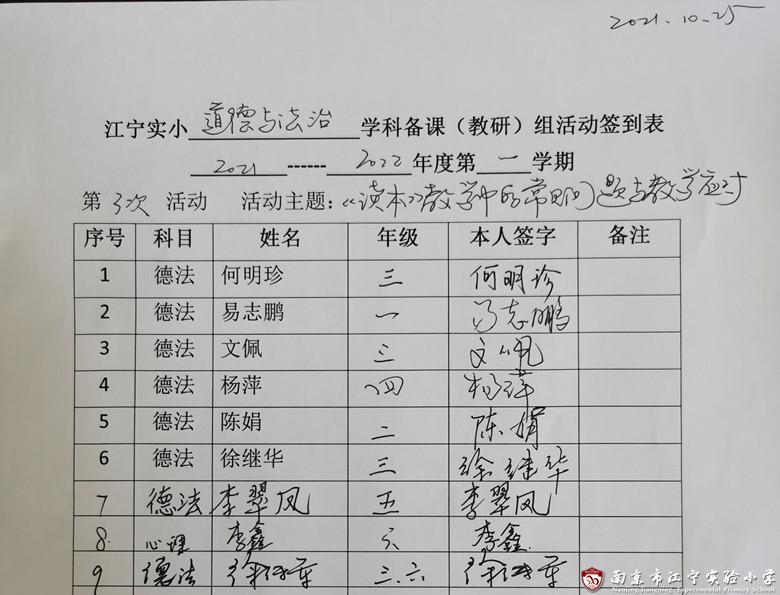 2021.10.25
江宁实小道德与法治学科备课（教研）组活动签到表
2021------2022年度第一学期
第3次 活动 活动主题：《读本》教学中的常见问题与教学应对
序号 科目 姓名 年级 本人签字 备注
1 德法 何明珍 三 何明珍
2 德法 易志鹏 一 易志鹏
3 德法 文佩 三 文佩
4 德法 杨萍 四 杨萍
5 德法 陈娟 二 陈娟
6 德法 徐继华 三 徐继华
7 德法 李翠凤 五 李翠凤
8. 心理 李鑫 六 李鑫.
9 德法 三、六
南京市江宁实验小学
Nanjing Jiangning Experimental Primary School